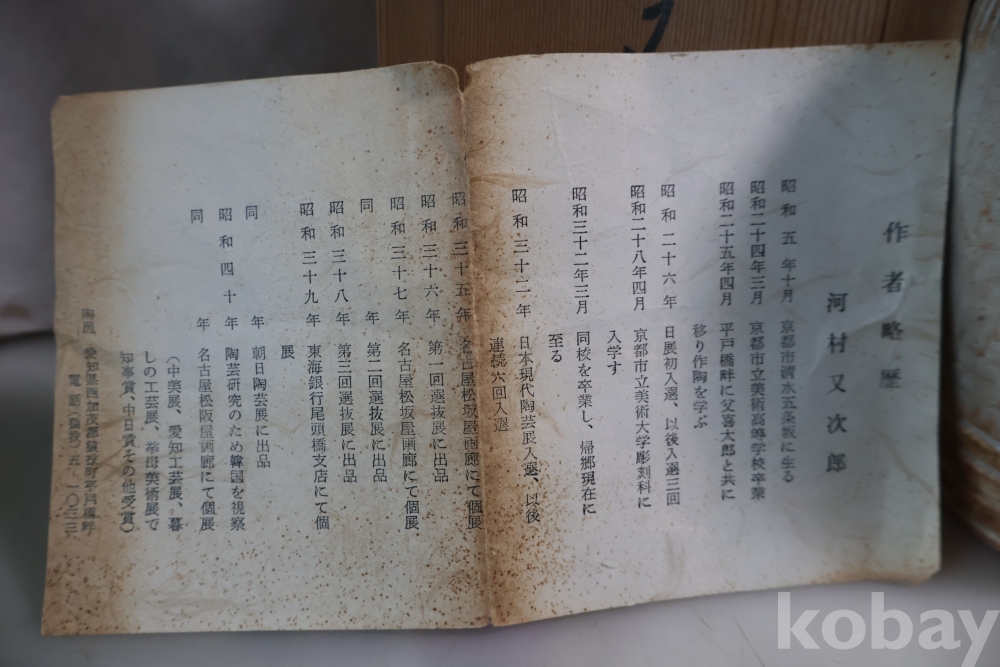 作者略歴
河村又次郎
昭和五年十月 京都市清水五条坂に生る
昭和二十四年三月 京都市立美術高等学校卒業
昭和二十五年四月 平戸橋畔に父喜太郎と共に
移り作陶を学ぶ
昭和二十六年 日展初入選、以後入選三回
昭和二十八年四月 京都市立美術大学彫刻科に
入学す
昭和三十二年三月 同校を卒業し、帰郷現在に
至る
昭和三十二年 日本現代陶芸展入選、以後
連続六回入選
昭和三十五年 名古屋松坂屋画廊にて個展
昭和三十六年 第一回選抜展に出品
昭和三十七年 名古屋松坂屋画廊にて個展、
同年 第二回選抜展に出品
昭和三十八年 第三回選抜展に出品
昭和三十九年 東海銀行尾頭橋支店にて個
展
同年 朝日陶芸展に出品
昭和四十年 陶芸研究のため韓国を視察
同年 名古屋松阪屋画廊にて個展
(中美展、愛知工芸展、暮
しの工芸展、挙母美術展で
知事賞、中日賞その他受賞)
愛知県西加茂郡猿投町平戸橋畔
電話(猿投)五・一〇三三
kobay